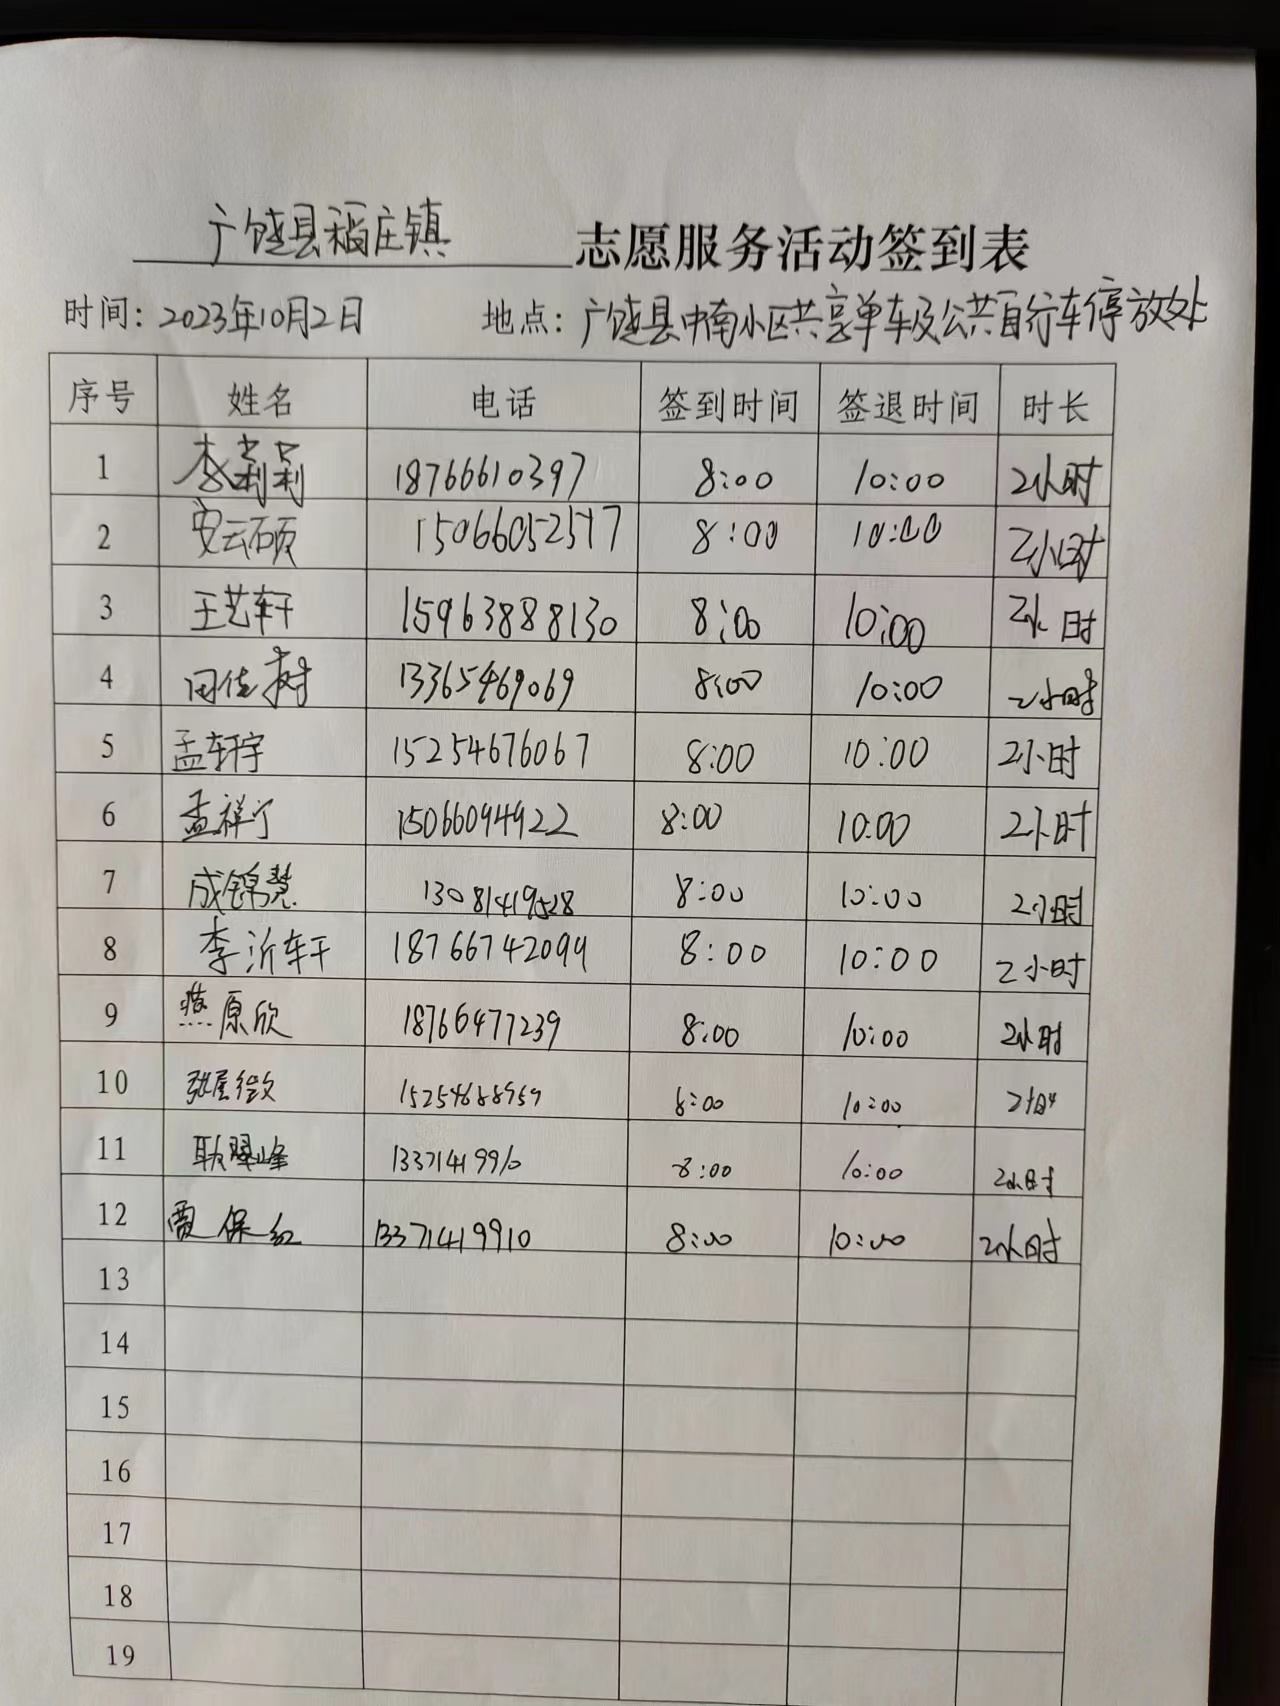 广饶县稻庄镇 志愿服务活动签到表
时间：2023年10月2日 地点：广饶县中南小区共享单车及公共自行车停放处
序号 姓名 电话 签到时间 签退时间 时长
1 李莉莉 18766610397 8:00 10:00 2小时
2 安云硕 15066052517 8:00 10:00 2小时
3 王艺轩 15963888130 8:00 10:00 2小时
4 田佳树 13365469069 8:00 10:00 2小时
5 孟轩宇 15254676067 8:00 10:00 2小时
6 孟祥宁 15066094922 8:00 10:00 2小时
7 成锦慧 13081419528 8:00 10:00 2小时
8 李沂轩 18766742099 8:00 10:00 2小时
9 燕原欣 18766477239 8:00 10:00 2小时
10 8:00 10:00 2小时
11 耿翠峰 13371419910 8:00 10:00 2小时
12 贾保红 13371419910 8:00 10:00 2小时
13
14
15
16
17
18
19